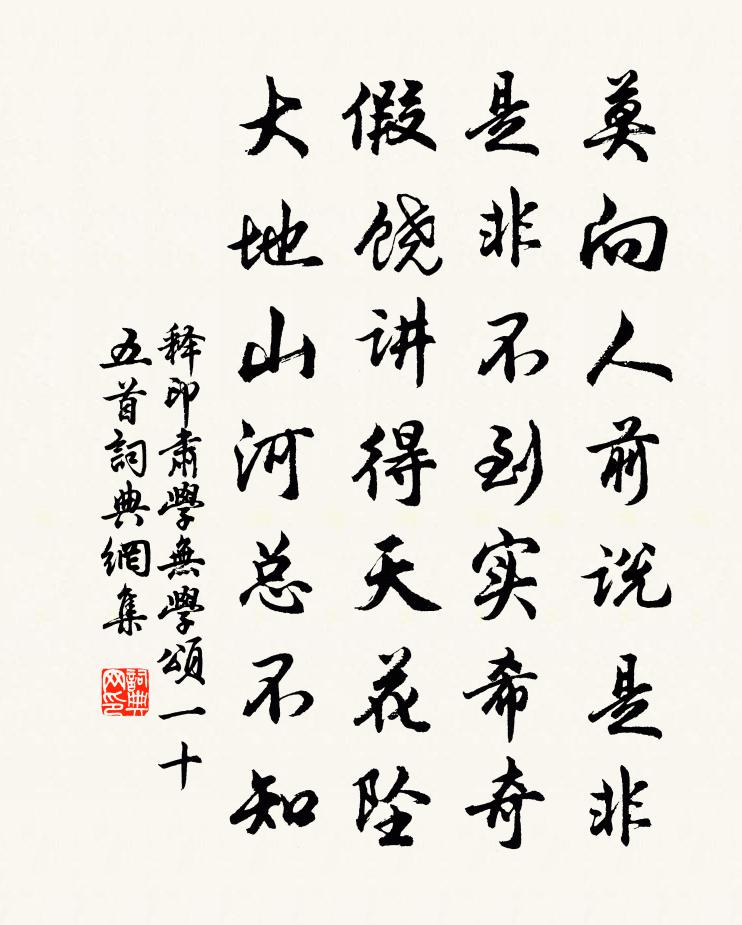 莫向人前说是非
是非不到实希奇
假饶讲得天花坠
大地山河总不知
释印肃學無學頌一十
五首詞典網集
詞典
网印